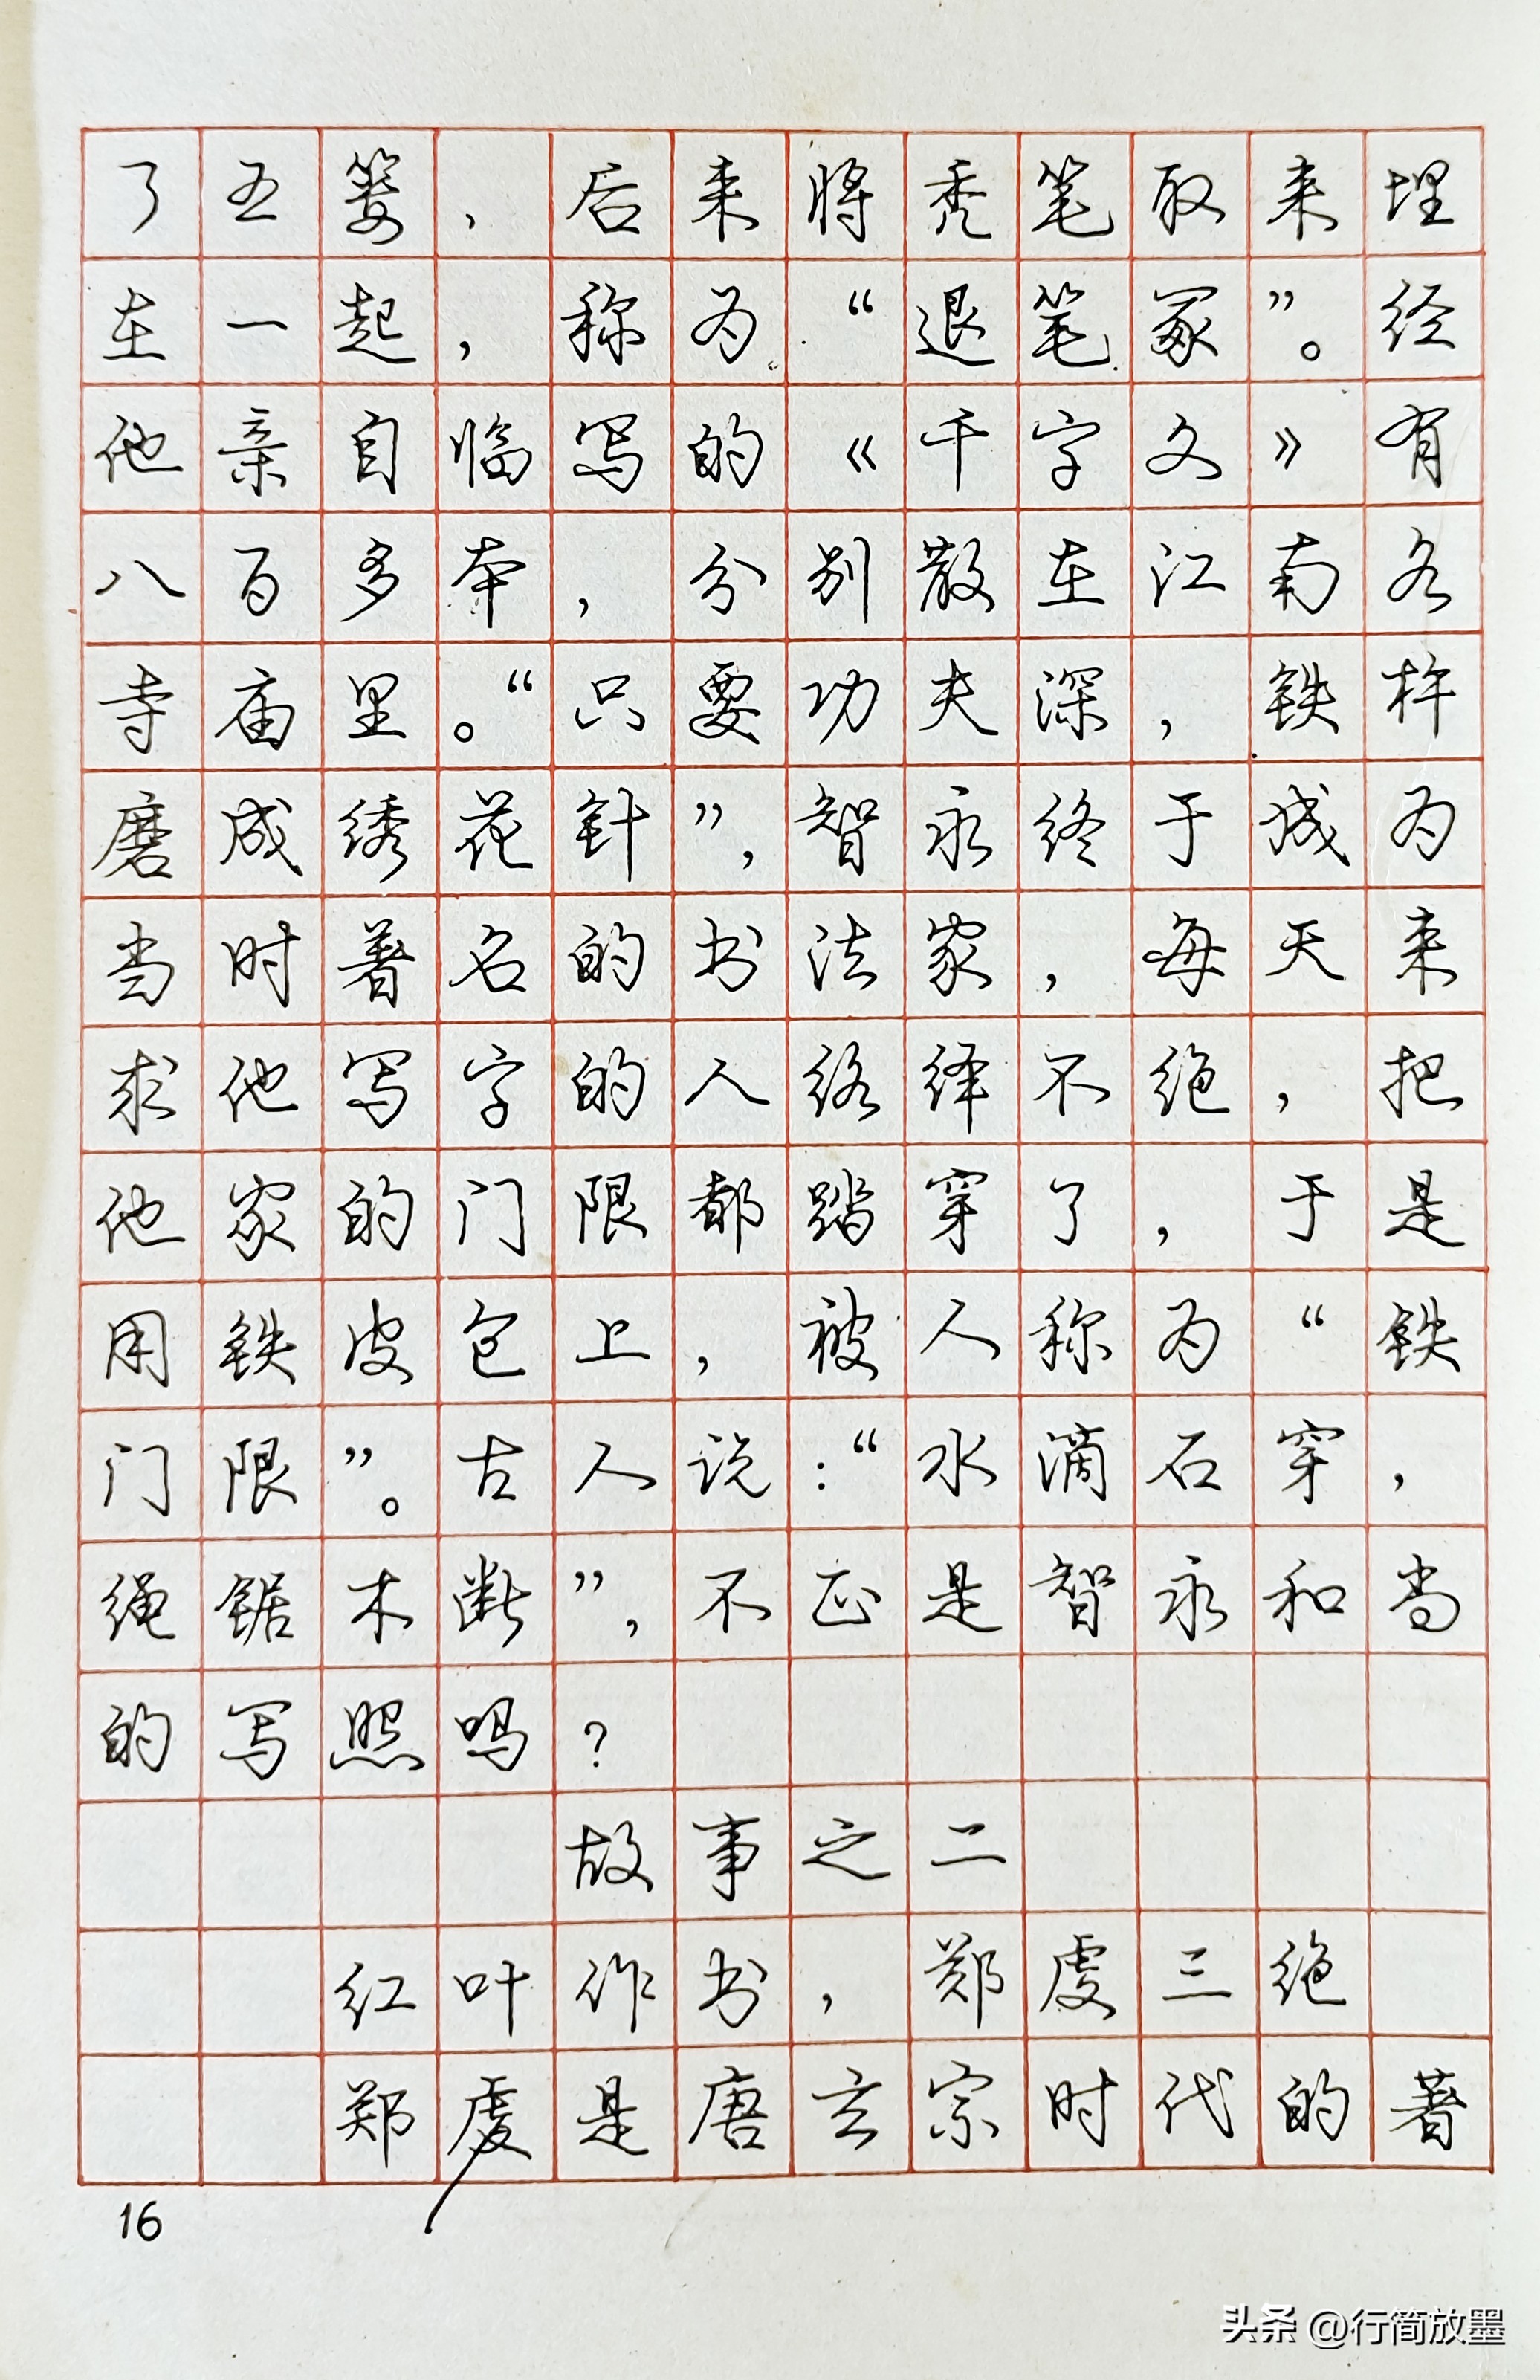 了五篓，后来将秃笔取来埋
在一起，称为“退笔冢”。经
他亲自临写的《千字文》有
八百多本，分别散在江南各
寺庙里。“只要功夫深，铁杵
磨成绣花针”，智永终于成为
当时著名的书法家，每天来
求他写字的人络绎不绝，把
他家的门限都踏穿了，于是
用铁皮包上，被人称为“铁
门限”。古人说：“水滴石穿，
绳锯木断”，不正是智永和尚
的写照吗？
故事之二
红叶作书，郑虔三绝
郑虔是唐玄宗时代的著
16
头条 @行简放墨